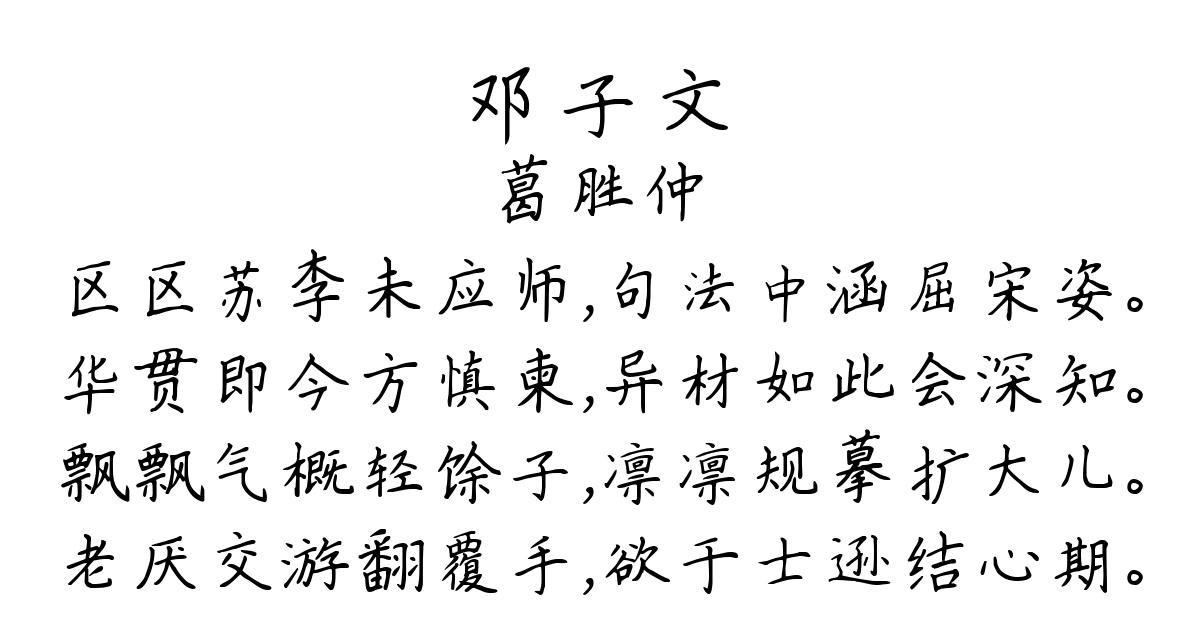 邓子文
葛胜仲
区区苏李未应师,句法中涵屈宋姿。
华贯即今方慎柬,异材如此会深知。
飘飘气概轻馀子,凛凛规摹扩大儿。
老厌交游翻覆手,欲于士逊结心期。